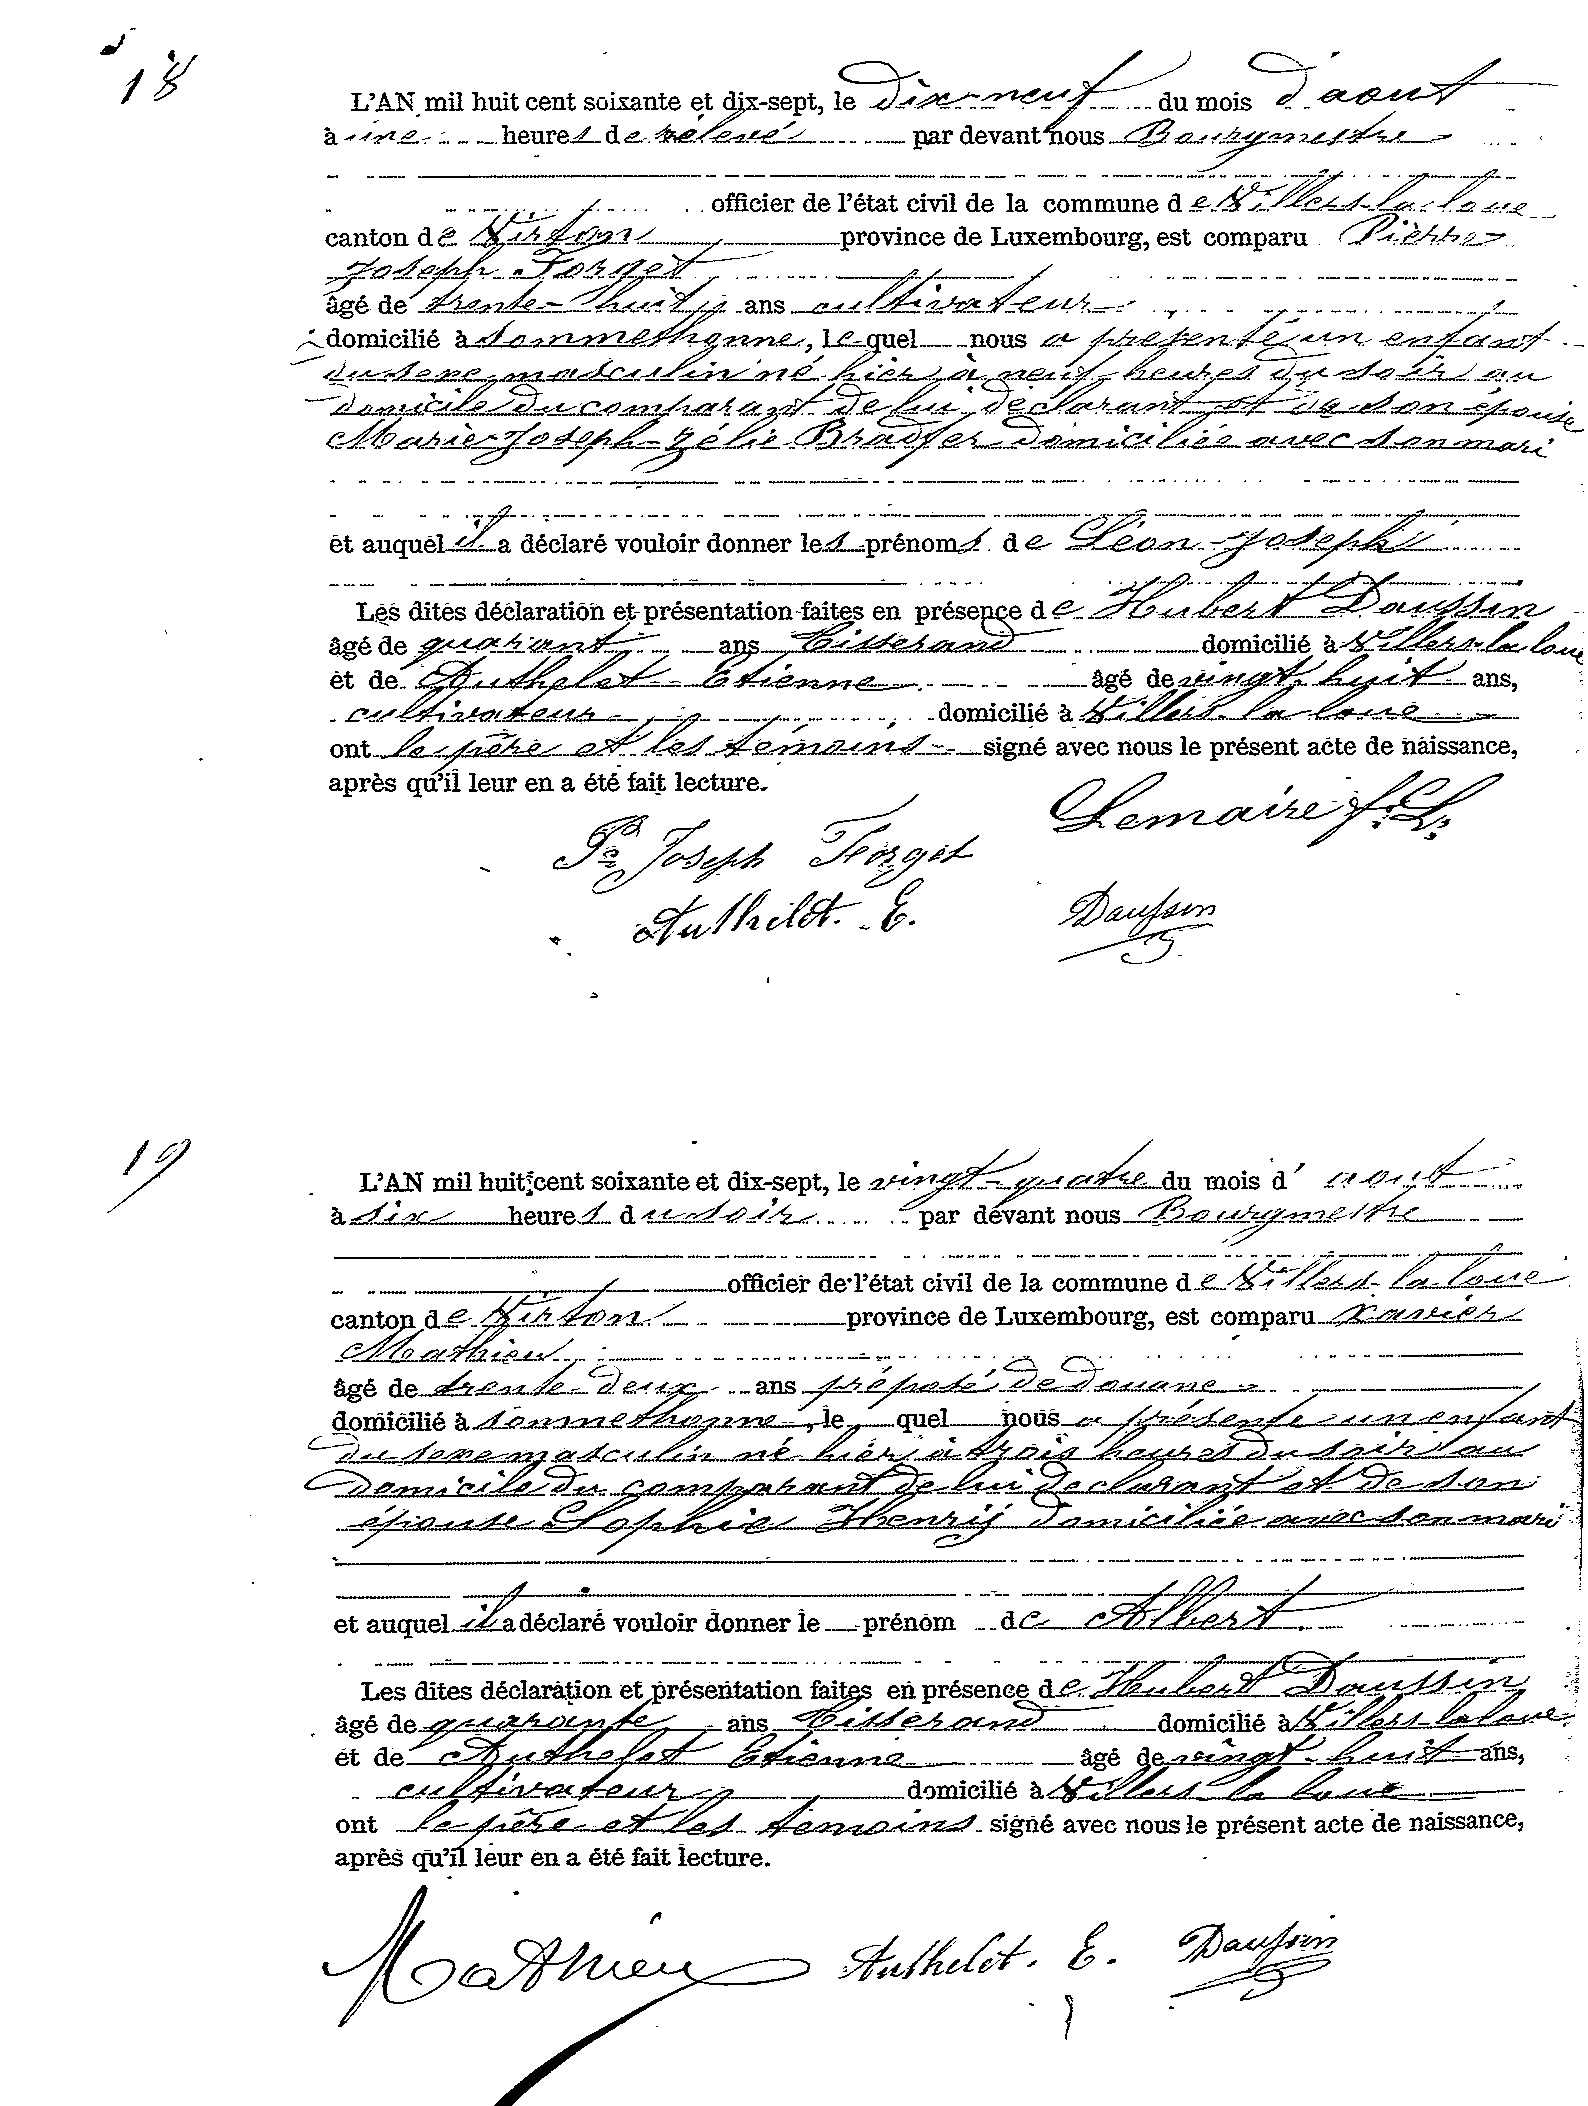 18
L'AN mil huit cent soixante et dix-sept, le dix-neuf du mois d'aout
à une heures de relevé par devant nous Bourgmestre
officier de l'état civil de la commune de Villers-la-loue
canton de Virton province de Luxembourg, est comparu Pierre
Joseph Forget
âgé de trente-huit ans cultivateur
domicilié à Sommethonne, le quel nous a présenté un enfant
du sexe masculin né hier à neuf heures du soir au
domicile du comparant de lui déclarant et de son épouse
Marie-Joseph-Zélie Bradfer domiciliée avec son mari
et auquel il a déclaré vouloir donner les prénoms de Léon Joseph
Les dites déclaration et présentation faites en présence de Hubert Daussin
âgé de quarant ans Tisserand domicilié à Villers-la loue
et de Authelet Etienne âgé de vingt-huit ans,
cultivateur domicilié à Villers-la loue
ont le père et les témoins signé avec nous le présent acte de naissance,
après qu'il leur en a été fait lecture.
Lemaire f. L.
Pre Joseph Forget
Authelet. E. Daussin
19
L'AN mil huit cent soixante et dix-sept, le vingt-quatre du mois d' aout
à six heures du soir par devant nous Bourgmestre
officier de l'état civil de la commune de Villers-la loue
canton de Virton province de Luxembourg, est comparu Xavier
Mathieu
âgé de trente-deux ans préposé de douane
domicilié à Sommethonne, le quel nous a présenté un enfant
du sexe masculin né hier à trois heures du soir au
domicile du comparant de lui déclarant et de son
épouse Sophie Henrij domiciliée avec son mari
et auquel il a déclaré vouloir donner le prénom de Albert
Les dites déclaration et présentation faites en présence de Hubert Daussin
âgé de quarante ans Tisserand domicilié à Villers-la loue
et de Authelet Etienne âgé de vingt-huit ans,
cultivateur domicilié à Villers-la loue
ont le père et les témoins signé avec nous le présent acte de naissance,
après qu'il leur en a été fait lecture.
Mathieu Authelet. E. Daussin